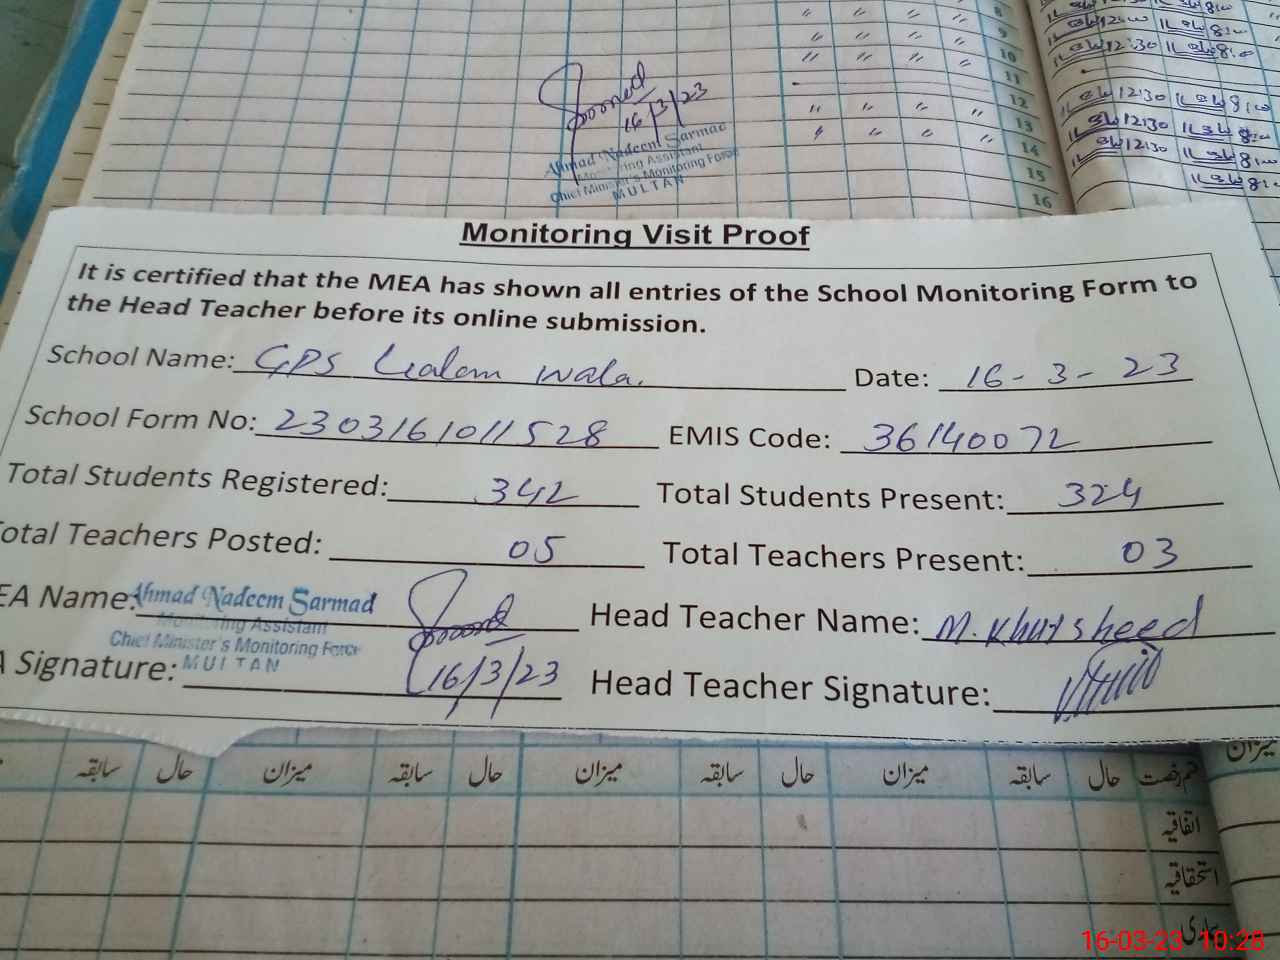 8
9
10
11
12
13
14
15
16
16/3/23
Ahmad Nadeem Sarmad
Monitoring Assistant
Chief Minister's Monitoring Force
MULTAN
Monitoring Visit Proof
It is certified that the MEA has shown all entries of the School Monitoring Form to
the Head Teacher before its online submission.
School Name: GPS Lalam wala. Date: 16-3-23
School Form No: 2303161011528 EMIS Code: 36140072
Total Students Registered: 342 Total Students Present: 324
otal Teachers Posted: 05 Total Teachers Present: 03
EA Name: Ahmad Nadeem Sarmad Head Teacher Name: M. Khursheed
Monitoring Assistant
Chief Minister's Monitoring Force
A Signature: MULTAN 16/3/23 Head Teacher Signature:
سابقہ حال میزان سابقہ حال میزان سابقہ حال میزان سابقہ حال قسم رخصت میزان
اتفاقیہ
استحقاقیہ
بیماری
16-03-23 10:28